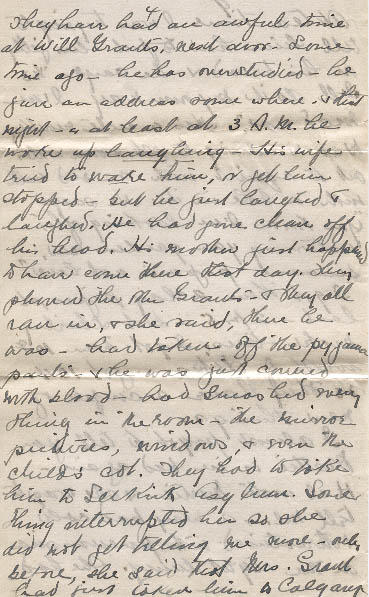 They have had an awful time
at Will Grants, next door. Some
time ago - he has overstudied - he
gave an address some where. & that
night - or at least at 3 A.M. he
woke up laughing - His wife
tried to wake him, & get him
stopped - but he just laughed &
laughed. He had gone clean off
his head. His mother just happened
to have come there that day. They
phoned the other Grants - & they all
ran in, & she said, there he
was - had taken off the pyjama
pants - & he was just covered
with blood - had smashed every
thing in the room - the mirror
pictures, windows, & even the
child's cot. They had to take
him to Selkirk asylum. Some
thing interrupted her so she
did not get telling me more - only
before, she said that Mrs. Grant
had just taken him to Calgary